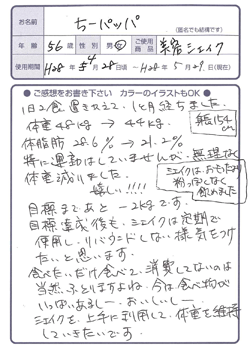 お名前
ちーパッパ
(匿名でも結構です)
年齢 56歳 性別 男・女 ご使用商品 素宿シェイク
使用期間 H28年4月28日頃 ～ H28年5月29日(現在)
●ご感想をお書き下さい カラーのイラストもOK●
1日2食置きかえて、1ヶ月経ちました。
体重48kg → 44kg
身長154cm
体脂肪28.6% → 21.2%
特に運動はしていませんが、無理なく
体重減りました。
嬉しい!!!
シェイクは、おもったより
粉っぽくなく
飲めました
目標まであと-2kgです。
目標達成後も、シェイクは定期で
使用し、リバウンドしない様気をつけ
たいと思います。
食べたいだけ食べて、消費してないのは
当然ふとりますよね。今は食べ物が
いっぱいあるしー、おいしいしー
シェイクを上手に利用して、体重を維持
していきたいです。